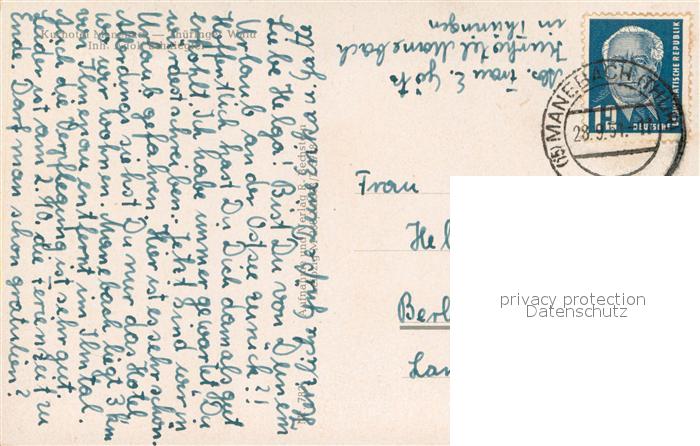 Kurhotel Manebach — Thüringer Wald
Inh. Adolf
Liebe Helga! Bist Du von Deinem
Urlaub an der Ostsee zurück?!
Hoffentlich hast Du Dich damals gut
erholt. Ich habe immer gewartet, Du
würdest schreiben. Jetzt sind wir in
Urlaub gefahren. Hier ist es sehr schön.
Allerdings siehst Du nur das Hotel
wo wir wohnen. Manebach liegt 3 km
von Ilmenau entfernt im Ilmtal.
Auch die Verpflegung ist sehr gut.
Leider ist am 2.10. die Ferienzeit zu
Ende. Darf man schon gratulieren?
Herzliche Grüße Deine
Abs. Frau E. Götz
Kurhotel Manebach
in Thüringen
Aufnahme und Verlag R. Bechstein
782
DEUTSCHE DEMOKRATISCHE REPUBLIK
12
(15) MANEBACH (THÜR)
28.9.51.
Frau
Hel
Berl
Lan
privacy protection
Datenschutz